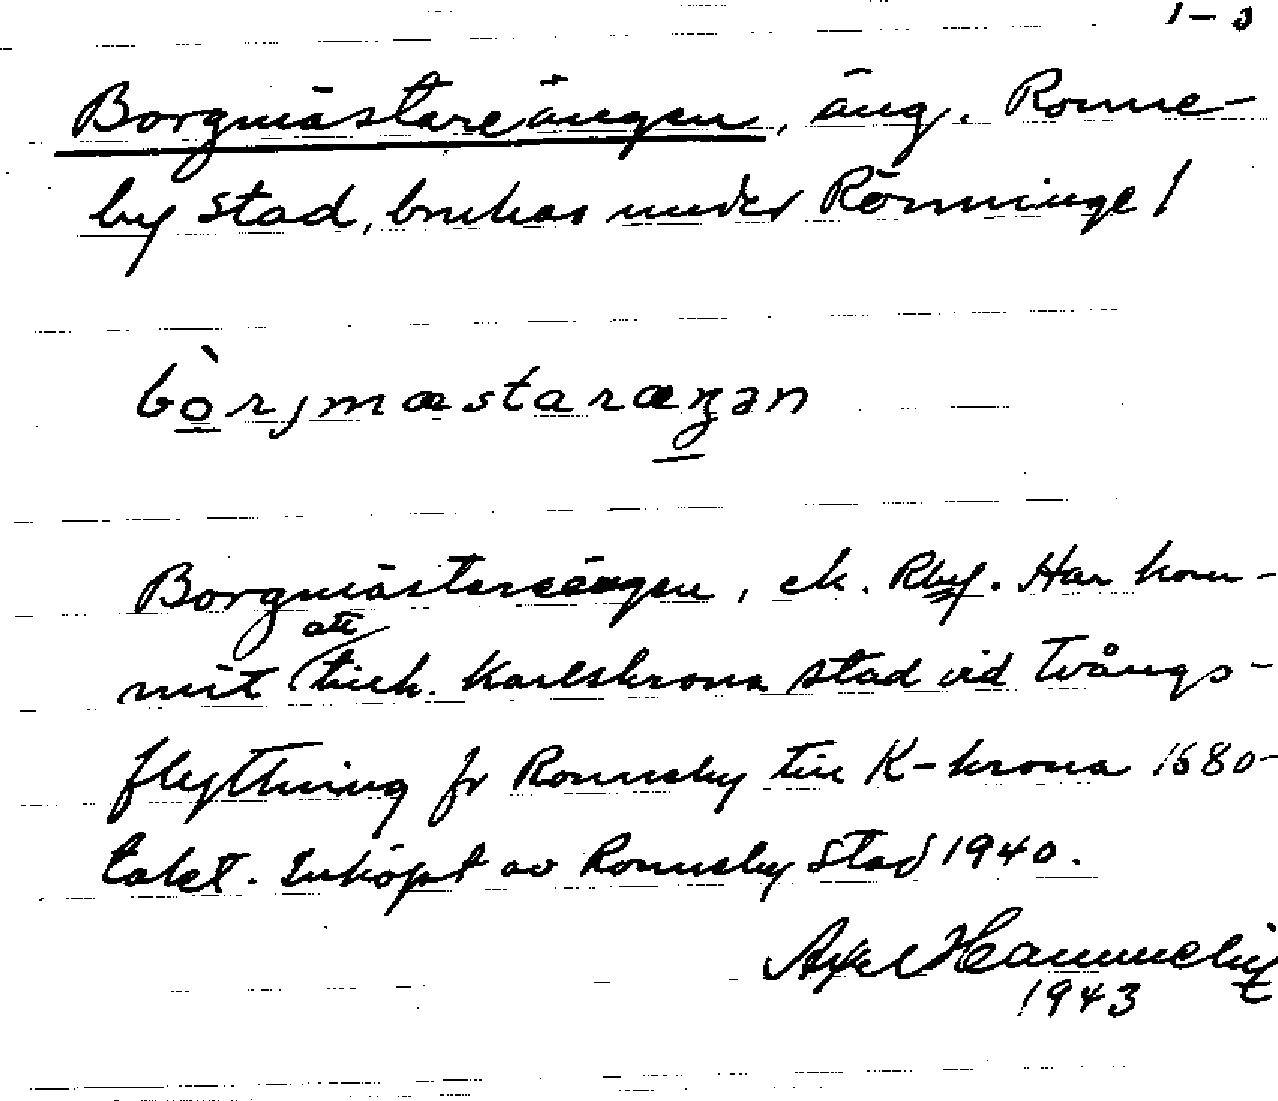 Borgmästareängen, äng. Ronne-
by stad, brukas under Rönninge /
bo̱rjmæstaraŋən
Borgmästereängen, ek. Rby. Har kom-
mit att tillh. Karlskrona stad vid tvångs-
flyttning fr Ronneby till K-krona 1680-
talet. Inköpt av Ronneby Stad 1940.
Axel Hammelin
1943